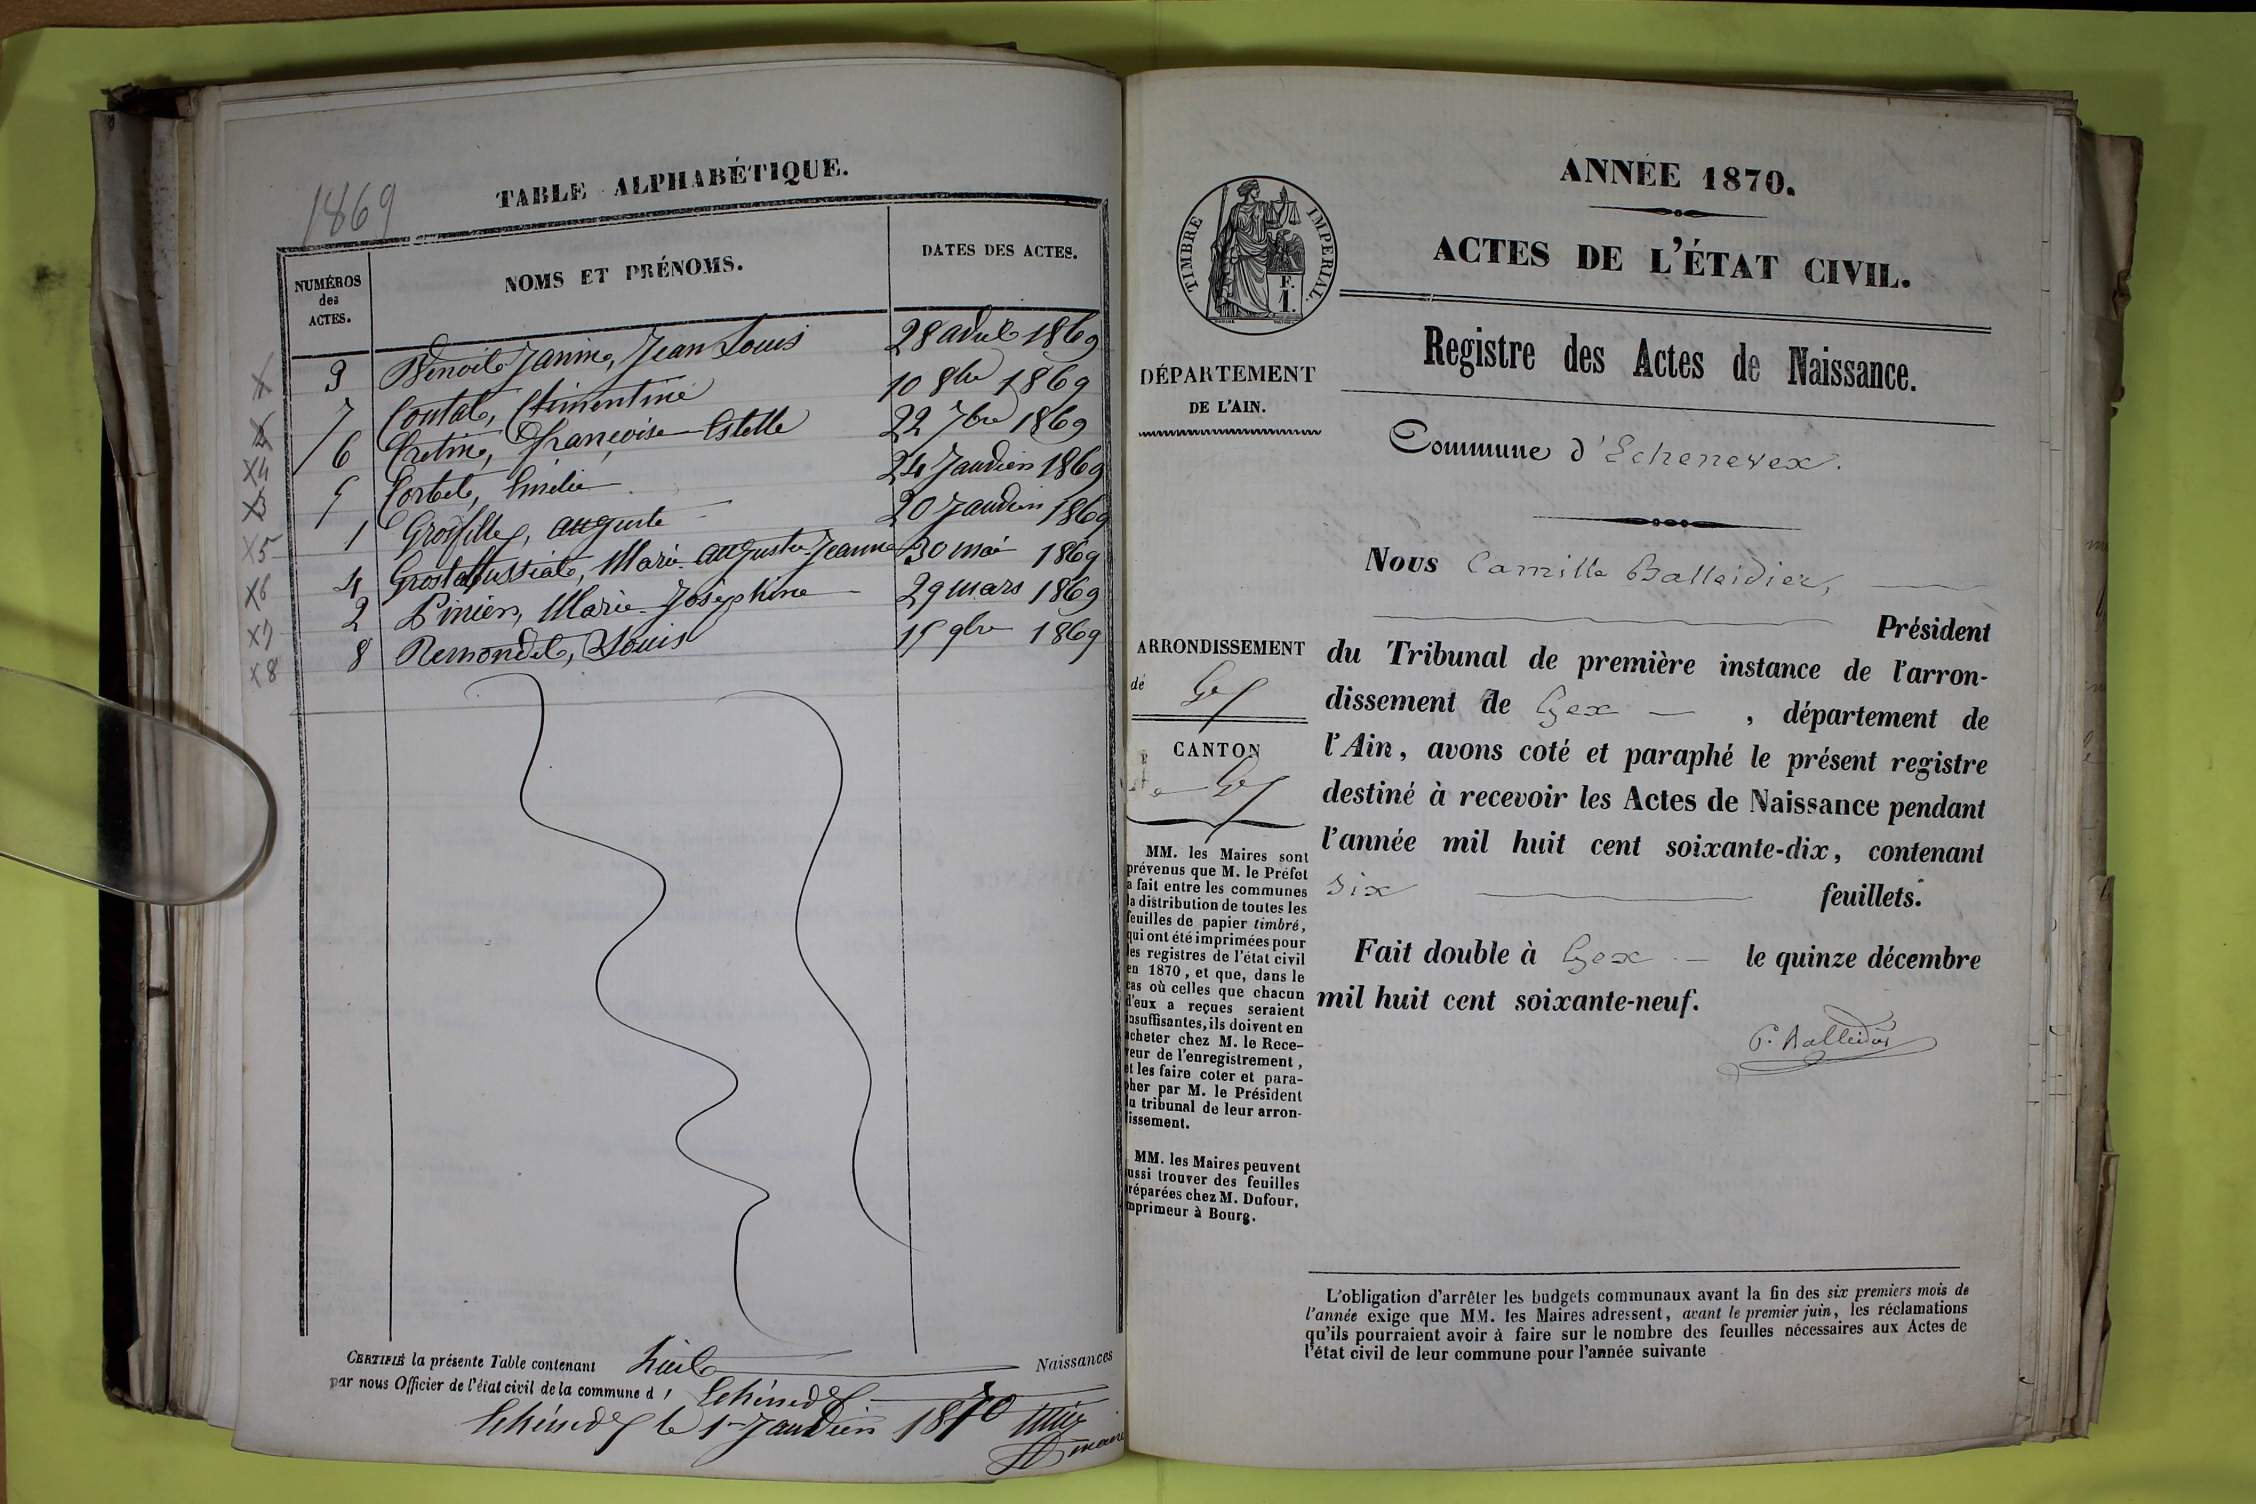 1869
TABLE ALPHABÉTIQUE.
NUMÉROS des ACTES.
NOMS ET PRÉNOMS.
DATES DES ACTES.
3 Benoit Janin, Jean Louis 28 avril 1869
7 Contat, Clémentine 10 8bre 1869
6 Cretin, Françoise Estelle 22 7bre 1869
5 Corbet, Emélie 24 Janvier 1869
1 Grosfilley, auguste 20 Janvier 1869
4 Marie auguste Jeanne 30 mai 1869
2 Pinier, Marie Joséphine 29 mars 1869
8 Remondet, Louis 15 9bre 1869
X
X4
X3
X5
X6
X7
X8
CERTIFIÉ la présente Table contenant huit Naissances
par nous Officier de l'état civil de la commune d'Echenevex
Echenevex le 1er Janvier 1870
maire
ANNÉE 1870.
ACTES DE L'ÉTAT CIVIL.
TIMBRE IMPERIAL.
F. 1.
Registre des Actes de Naissance.
DÉPARTEMENT
DE L'AIN.
Commune d'Echenevex.
Nous Camille Balleidier,
Président
du Tribunal de première instance de l'arron-
dissement de Gex, département de
l'Ain, avons coté et paraphé le présent registre
destiné à recevoir les Actes de Naissance pendant
l'année mil huit cent soixante-dix, contenant
six feuillets.
Fait double à Gex le quinze décembre
mil huit cent soixante-neuf.
C. Balleidier
ARRONDISSEMENT
de Gex
CANTON
de Gex
MM. les Maires sont
prévenus que M. le Préfet
a fait entre les communes
la distribution de toutes les
feuilles de papier timbré,
qui ont été imprimées pour
les registres de l'état civil
en 1870, et que, dans le
cas où celles que chacun
d'eux a reçues seraient
insuffisantes, ils doivent en
acheter chez M. le Rece-
veur de l'enregistrement,
et les faire coter et para-
pher par M. le Président
du tribunal de leur arron-
dissement.
MM. les Maires peuvent
aussi trouver des feuilles
préparées chez M. Dufour,
imprimeur à Bourg.
L'obligation d'arrêter les budgets communaux avant la fin des six premiers mois de
l'année exige que MM. les Maires adressent, avant le premier juin, les réclamations
qu'ils pourraient avoir à faire sur le nombre des feuilles nécessaires aux Actes de
l'état civil de leur commune pour l'année suivante